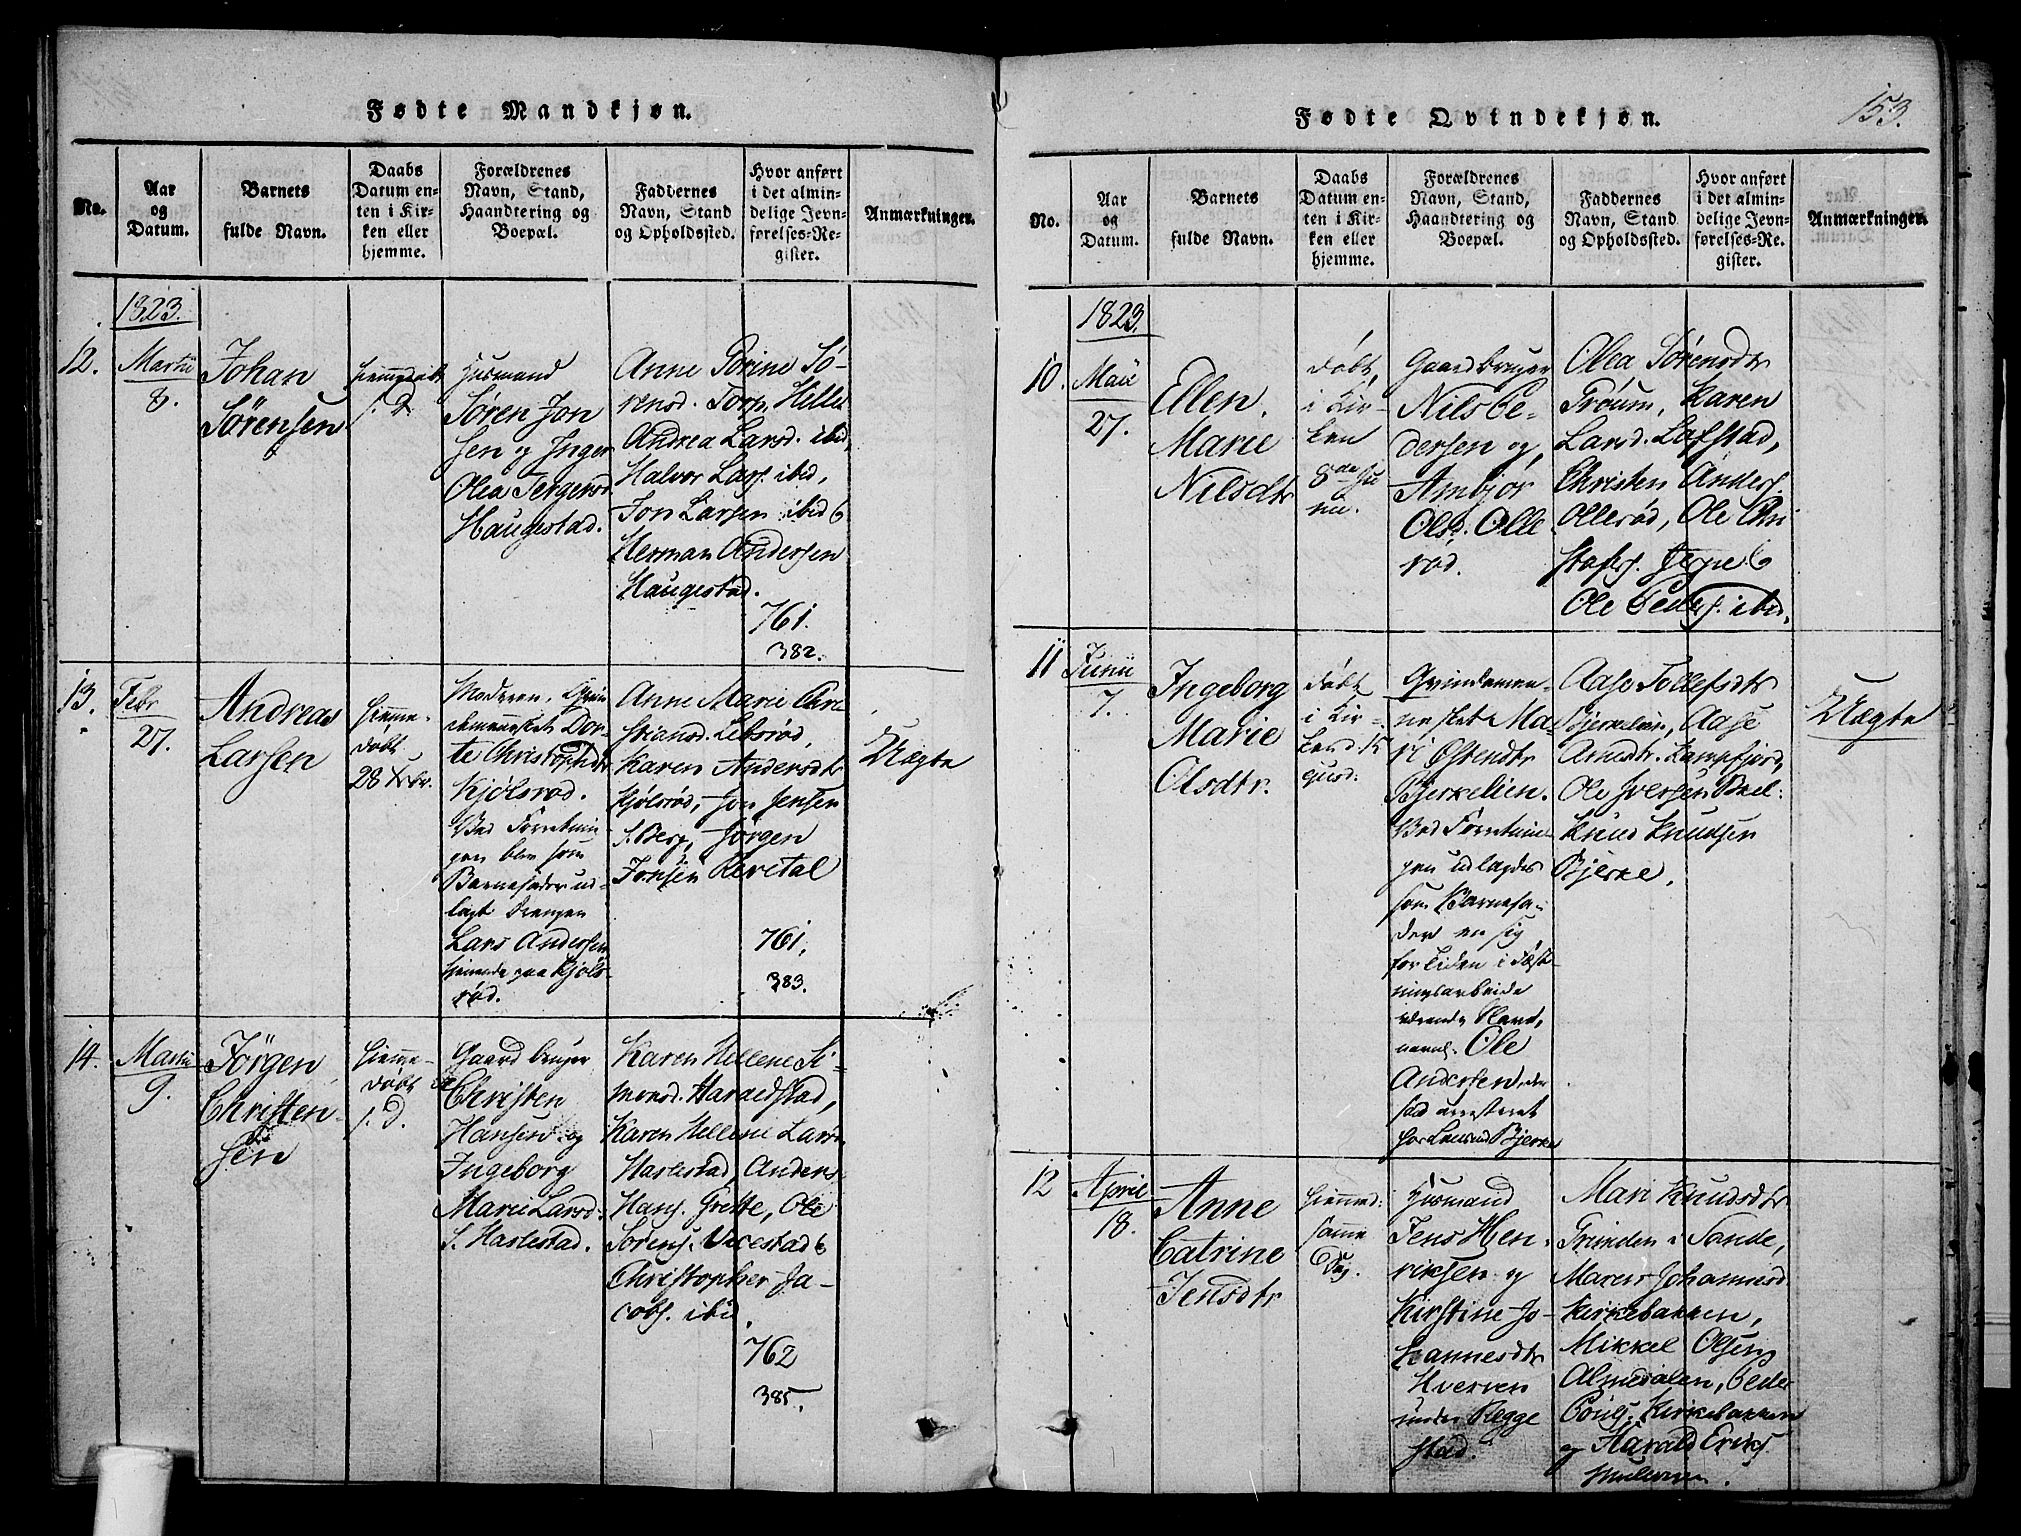 Fødte Mandkjøn.
No.
Aar
og
Datum.
Barnets
fulde Navn.
Daabs
Datum en-
ten i Kir-
ken eller
hjemme.
Forældrenes
Navn, Stand,
Haandtering og
Boepæl.
Faddernes
Navn, Stand
og Opholdssted.
Hvor anført
i det almin-
delige Jevn-
førelses-Re-
gister.
Anmærkninger.
1823.
12.
Martii
8.
Johan
Sørensen
s. D.
Husmand
Søren Jon
sen og Inger
Olea
Haugestad.
Anne Torine Sø-
rensd. Torp, Helle
Andrea Larsd. ibid,
Halvor Lars. ibid,
Jon Larsen ibid &
Herman Andersen
Haugestad.
761.
382.
13.
Febr
27.
Andreas
Larsen
hjemme-
døbt
28 Febr.
Moderen, Qvin
demennesket Dor-
te Christophdtr
Kjølsrød.
Ved Forretnin-
gen blev som
Barnefader ud-
lagt Drengen
Lars Andersen
tjenende paa Kjøls-
rød.
Anne Marie Chri
stiansd. Lebsrød,
Karen Andersdtr
Kjølsrød, Jon Jensen
S. Berg, Jørgen
Jonsen Revetal
761,
383.
Uægte
14.
Martii
9.
Jørgen
Christen-
sen
hjemme-
døbt
s. D.
Gaardbruger
Christen
Hansen og
Ingeborg
Marie Larsd.
S. Haslestad.
Karen Hellene Si-
monsd. Haraldstad,
Karen Hellene Larsd.
Haslestad, Anders
Hans. Grette, Ole
Sørens. Vivestad &
Christopher Ja-
cobs. ibid.
762
385.
Fødte Qvindekjøn.
153.
No.
Aar
og
Datum.
Barnets
fulde Navn.
Daabs
Datum en-
ten i Kir-
ken eller
hjemme.
Forældrenes
Navn, Stand,
Haandtering og
Boepæl.
Faddernes
Navn, Stand
og Opholdssted.
Hvor anført
i det almin-
delige Jevn-
førelses-Re-
gister.
Anmærkninger.
1823
10.
Maii
27.
Ellen
Marie
Nilsdtr
døbt
i Kir-
ken
8de Ju
nii.
Gaardbruger
Nils Pe-
dersen og
Ambjør
Olsd. Olle
rød.
Olea Sørensdtr
Trøum, Karen
Larsd. Lofstad,
Christen Anders.
Ollerød, Ole Chri
stofers. Jerpe &
Ole Peders. ibid.
11
Junii
7.
Ingeborg
Marie
Olsdtr.
døbt
i Kir-
Qvindemen-
nesket Ma-
ri Østendtr
Bjerkelien.
Ved Forretnin-
gen udlagdes
som Barnefa-
der en sig
for Tiden i Fæst-
ningsarbeide
værende Slave,
navnl. Ole
Andersen, der
sad arresteret
hos Bjerke
Aase Tollefsdtr
Bjerkelien, Aase
Arnesdtr. Kampfjord,
Ole Iversen
Knud Knudsen
Bjerke,
Uægte
12
April
18.
Anne
Catrine
Jensdtr
hjemmed:
samme
Dag.
Husmand
Jens Hen-
riksen og
Kirstine Jo-
hannesdtr
Hverven
under Regge
stad.
Mari Knudsdtr
Trinden i Sande,
Maren Johannesd
Kirkebakken,
Mikkel Olsen
Almedalen, Peder
Pouls. Kirkebakken
og Harald Eriks.